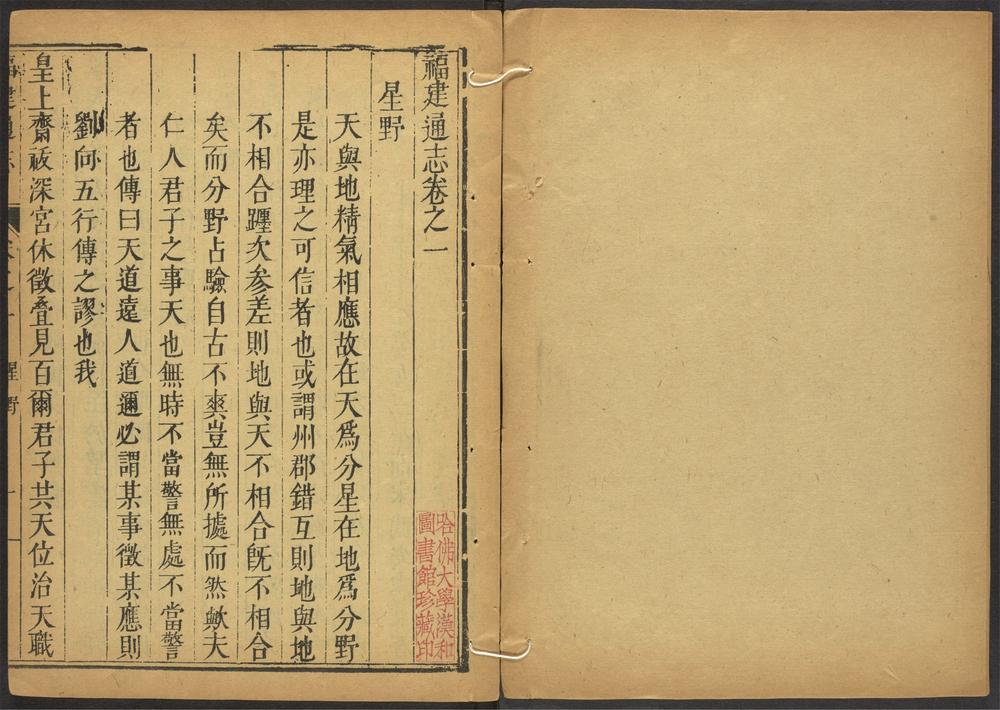 福建通志卷之一
星野
天與地精氣相應故在天爲分星在地爲分野
是亦理之可信者也或謂州郡錯互則地與地
不相合躔次參差則地與天不相合旣不相合
矣而分野占驗自古不爽豈無所據而然歟夫
仁人君子之事天也無時不當警無處不當警
者也傳曰天道遠人道邇必謂某事徵某應則
劉向五行傳之謬也我
皇上齋祓深宮休徵疊見百爾君子共天位治天職
福建通志 卷之一 星野 一
哈佛大學漢和
圖書館珍藏印